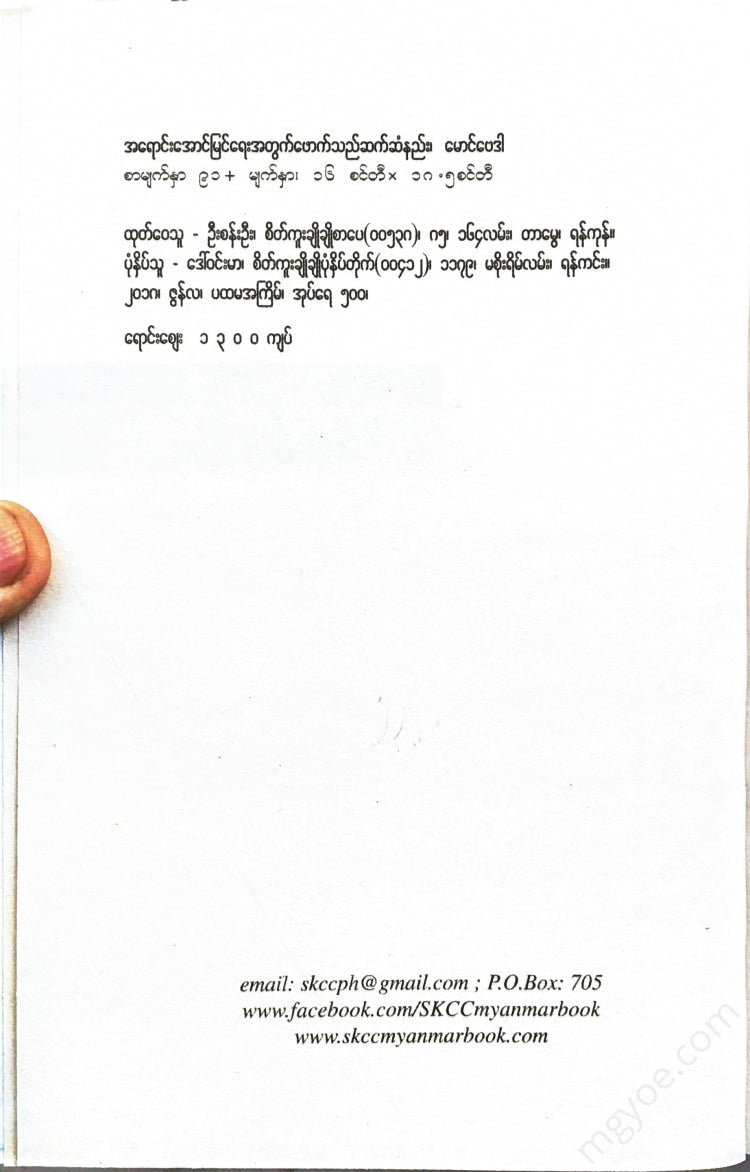 အရောင်းအောင်မြင်ရေးအတွက်ဖောက်သည်ဆက်ဆံနည်း၊ မောင်ဗေဒါ
စာမျက်နှာ ၉၁+ မျက်နှာ၊ ၁၆ စင်တီ× ၁ဂ.၅စင်တီ
ထုတ်ဝေသူ - ဦးစန်းဦး၊ စိတ်ကူးချိုချိုစာပေ(၀၀၅၃ဂ)၊ ဂ၅၊ ၁၆၄လမ်း၊ တာမွေ၊ ရန်ကုန်။
ပုံနှိပ်သူ - ဒေါ်ဝင်းမာ၊ စိတ်ကူးချိုချိုပုံနှိပ်တိုက်(၀၀၄၁၂)၊ ၁၁၇၉၊ မစိုးရိမ်လမ်း၊ ရန်ကင်း။
၂၀၁ဂ၊ ဇွန်လ၊ ပထမအကြိမ်၊ အုပ်ရေ ၅၀၀၊
ရောင်းဈေး ၁ ၃ ၀ ၀ ကျပ်
email: skccph@gmail.com ; P.O.Box: 705
www.facebook.com/SKCCmyanmarbook
www.skccmyanmarbook.com
mgyoe.com